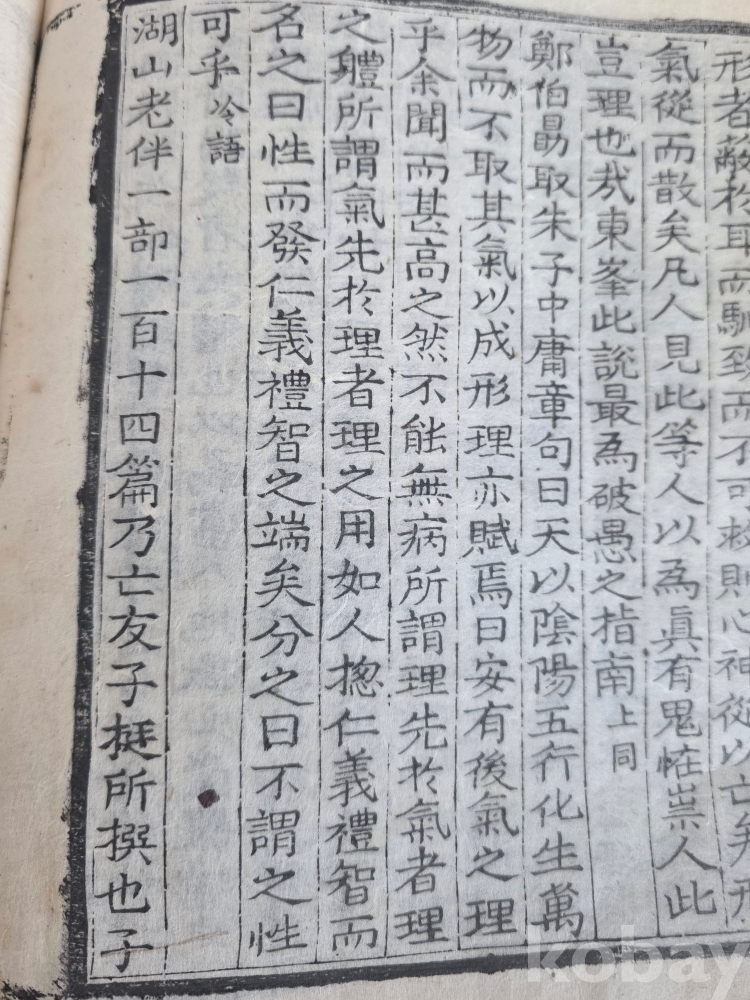 形者蔽於耳而馳致而不可救則心神從以亡矣形
氣從而散矣凡人見此等人以為眞有鬼怪祟人此
豈理也㢤東峯此說最為破愚之指南上同
鄭伯勗取朱子中庸章句曰天以陰陽五行化生萬
物而不取其氣以成形理亦賦焉曰安有後氣之理
乎余聞而甚高之然不能無病所謂理先於氣者理
之體所謂氣先於理者理之用如人揔仁義禮智而
名之曰性而發仁義禮智之端矣分之曰不謂之性
可乎冷語
湖山老伴一部一百十四篇乃亡友子挺所撰也子
kobay